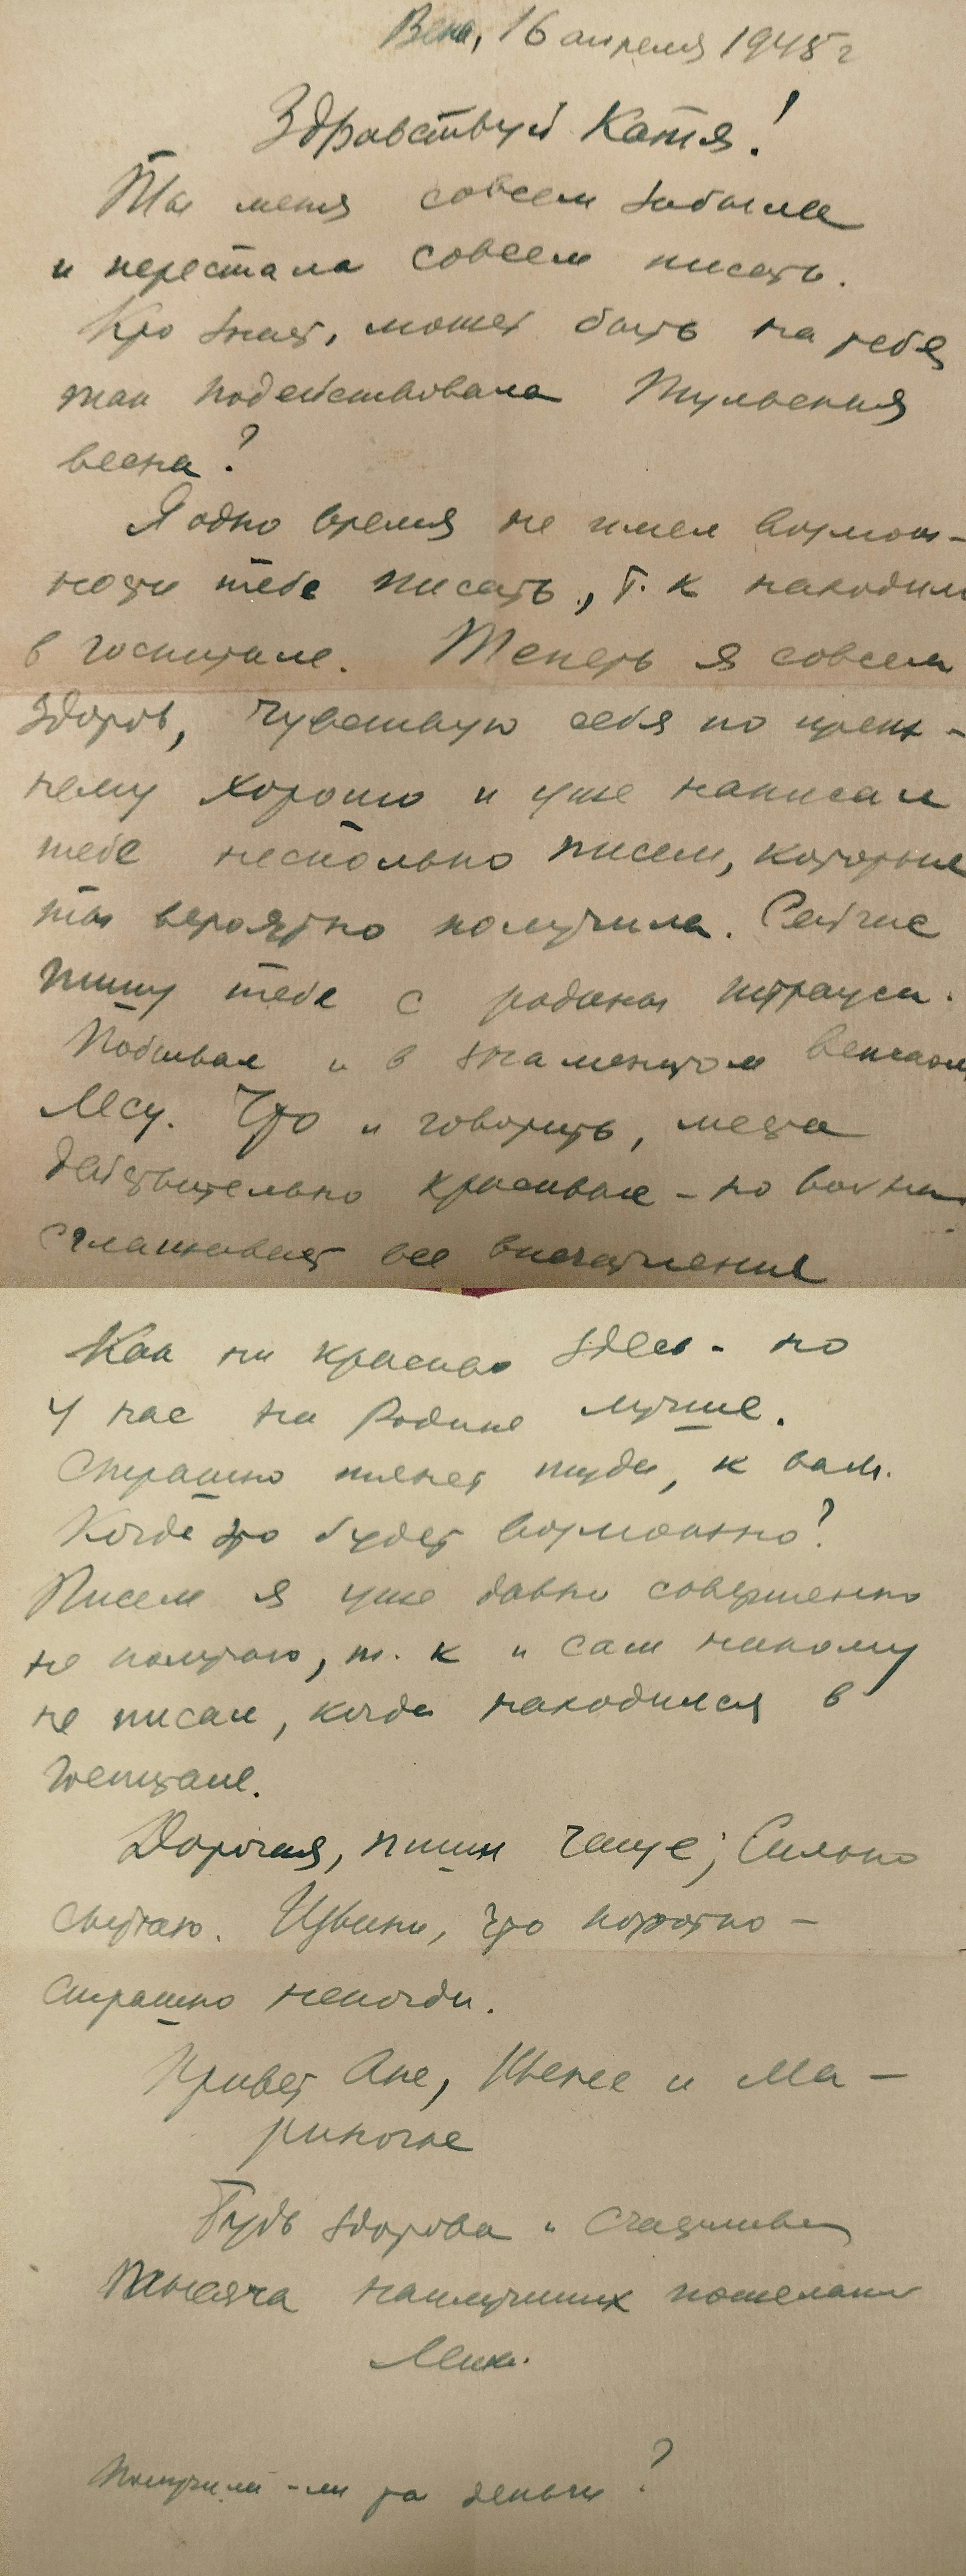 Вена, 16 апреля 1945 г
Здравствуй Катя!
Ты меня совсем забыла
и перестала совсем писать.
Кто знает, может быть на тебя
так подействовала Тульская
весна?
Я одно время не имел возмож-
ности тебе писать, т. к находился
в госпитале. Теперь я совсем
здоров, чувствую себя по преж-
нему хорошо и уже написал
тебе несколько писем, которые
ты вероятно получила. Сейчас
пишу тебе с родины Штрауса.
Побывал и в знаменитом венском
лесу. Что и говорить, места
действительно красивые - но война
сглаживает все впечатление
Как ни красиво здесь - но
у нас на Родине лучше.
Страшно тянет туда, к вам.
Когда это будет возможно?
Писем я уже давно совершенно
не получаю, т. к и сам никому
не писал, когда находился в
госпитале.
Дорогая, пиши чаще, Сильно
скучаю. Извини, что коротко -
страшно некогда.
Привет Ане, Жене и Ма-
риночке
Будь здорова и счастлива
Тысяча наилучших пожеланий
Получили-ли ты деньги?